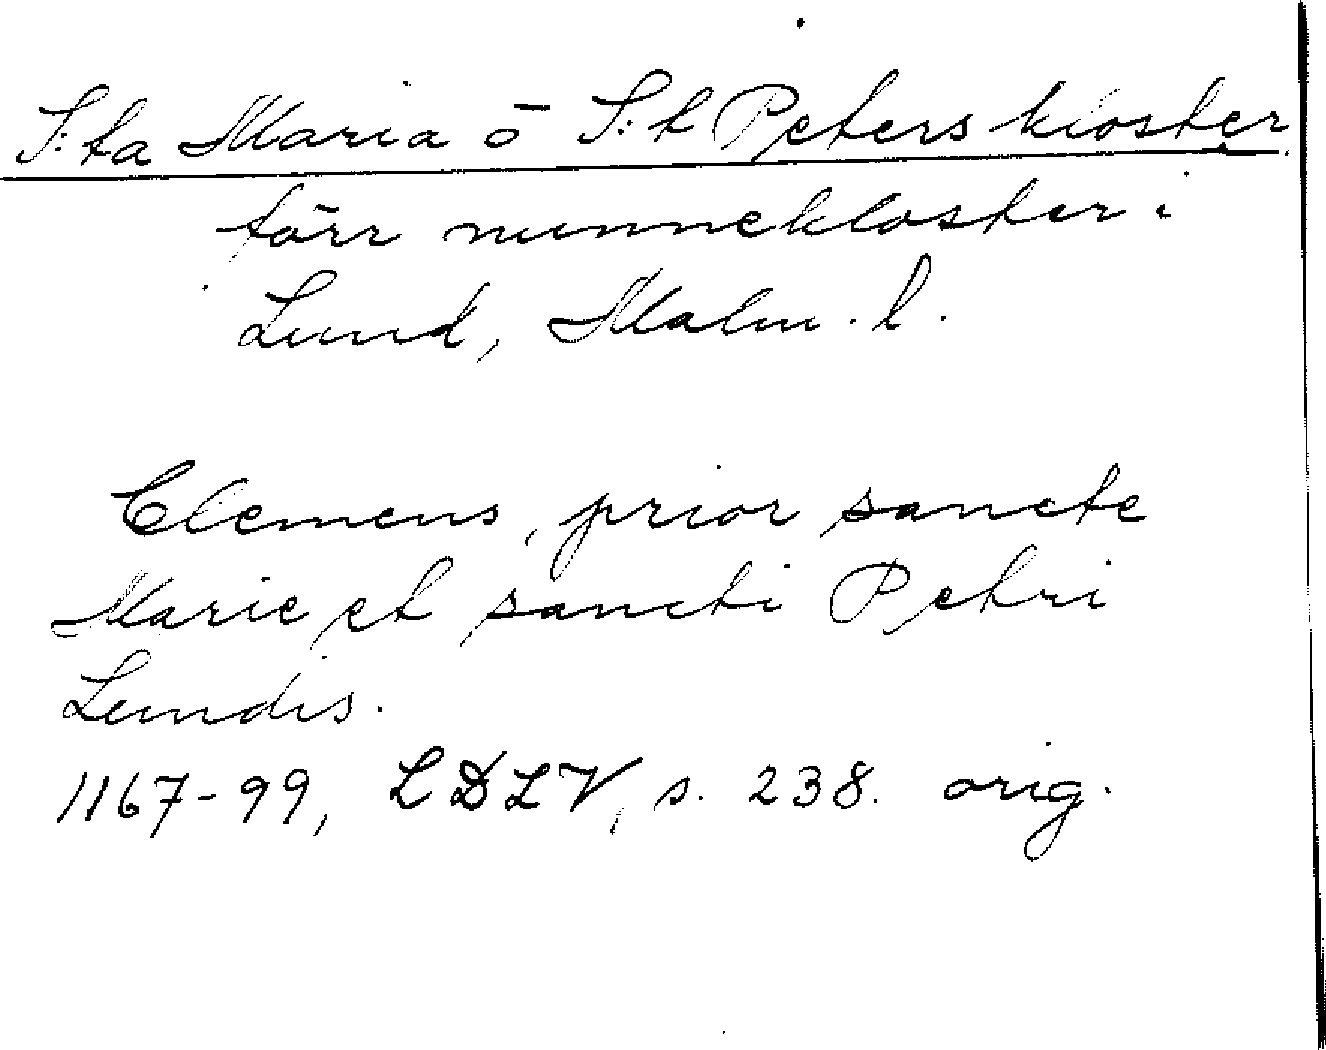 S:ta Maria o S:t Peters kloster
förr nunnekloster i
Lund, Malm. l.
Clemens, prior sancte
Marie et sancti Petri
Lundis.
1167-99, LDLV, s. 238. orig.